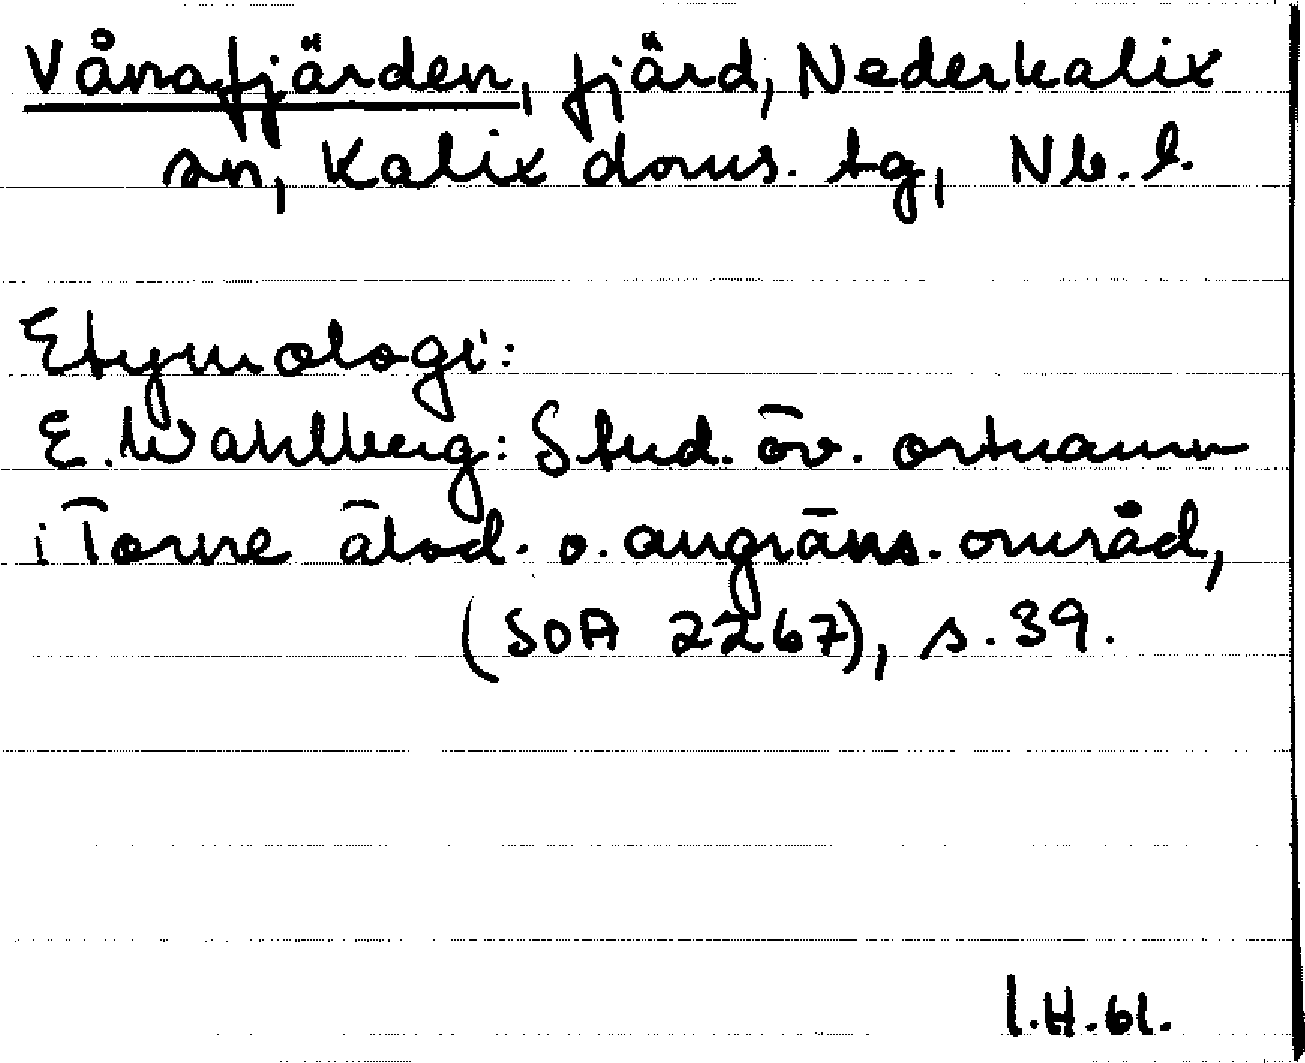 Vånafjärden, fjärd, Nederkalix
sn, Kalix doms. tg, Nb. l.
Etymologi:
E. Wahlberg: Stud. öv. ortnamn
i Torne älvd. o. angräns. områd,
(SOA 2267), s. 39.
I.H.61.